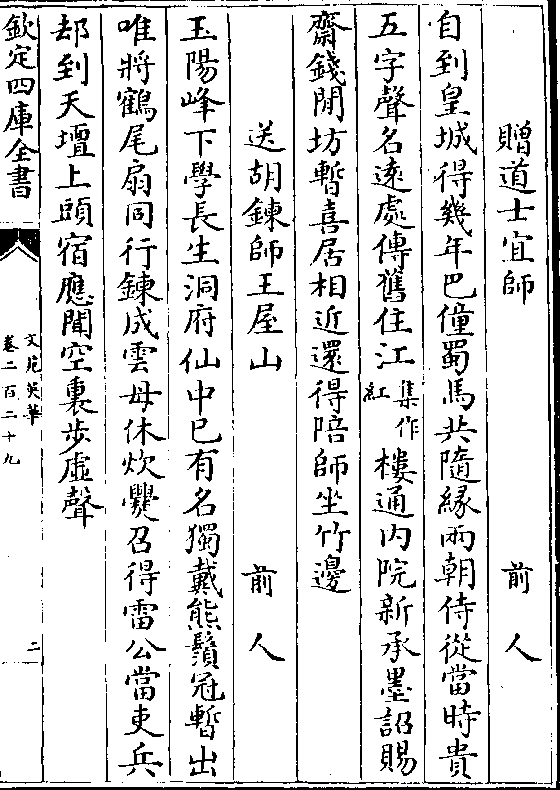 贈道士宜師 前人
自到皇城得幾年巴僮蜀馬共隨緣兩朝侍從當時貴
五字聲名逺處傳舊住江集作紅樓通内院新承墨詔賜
齋錢閒坊暫喜居相近還得陪師坐竹邊
送胡鍊師王屋山 前人
玉陽峰下學長生洞府仙中已有名獨戴熊鬚冠暫出
唯將鶴尾扇同行鍊成雲母休炊㸑召得雷公當吏兵
却到天壇上頭宿應聞空裏步虚聲
欽定四庫全書
文苑英華
卷二百二十九
二